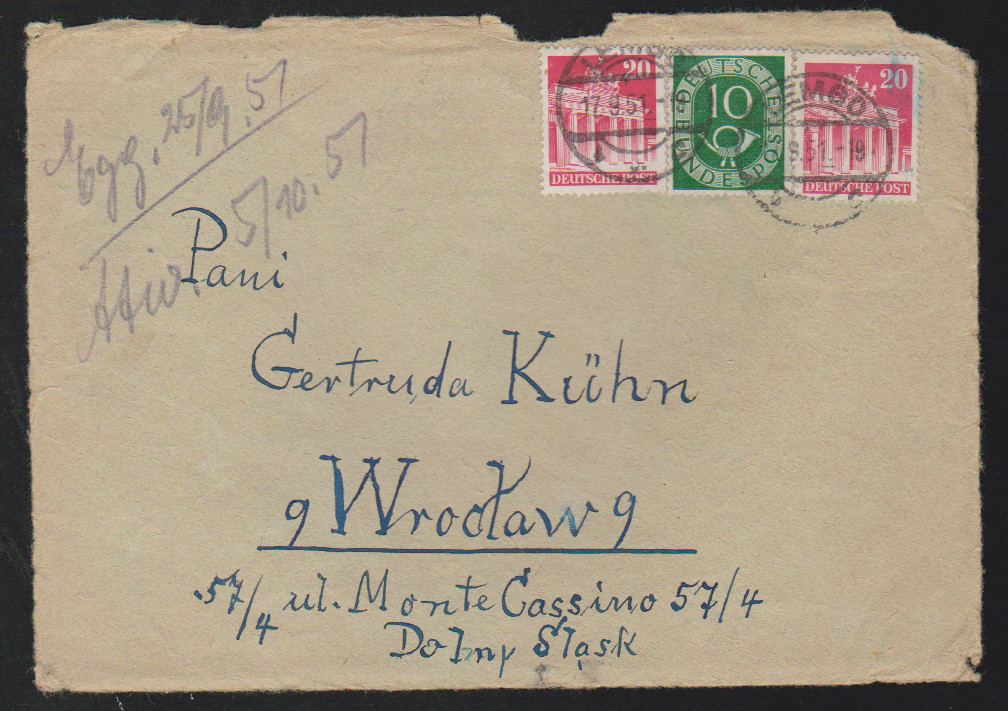 20
DEUTSCHE POST
DEUTSCHE BUNDESPOST
10
20
DEUTSCHE POST
LEMGO
17.9.51.-19
25/9.51
5/10.51
Pani
Gertruda Kühn
9 Wrocław 9
57/4 ul. Monte Cassino 57/4
Dolny Śląsk